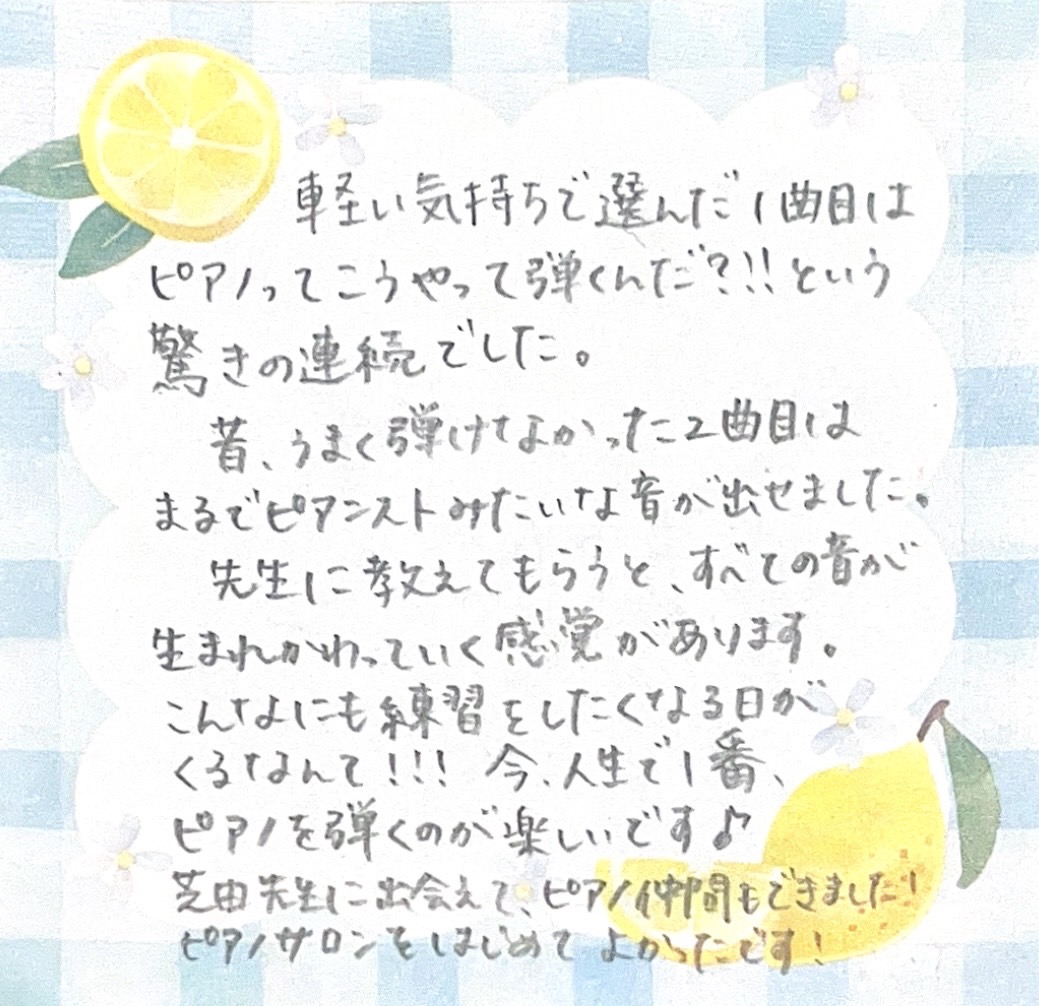 軽い気持ちで選んだ1曲目は
ピアノってこうやって弾くんだ?!!という
驚きの連続でした。
昔、うまく弾けなかった2曲目は
まるでピアニストみたいな音が出せました。
先生に教えてもらうと、すべての音が
生まれかわっていく感覚があります。
こんなにも練習をしたくなる日が
くるなんて!!! 今、人生で1番、
ピアノを弾くのが楽しいです♪
芝田先生に出会えて、ピアノ仲間もできました!
ピアノサロンをはじめてよかったです!